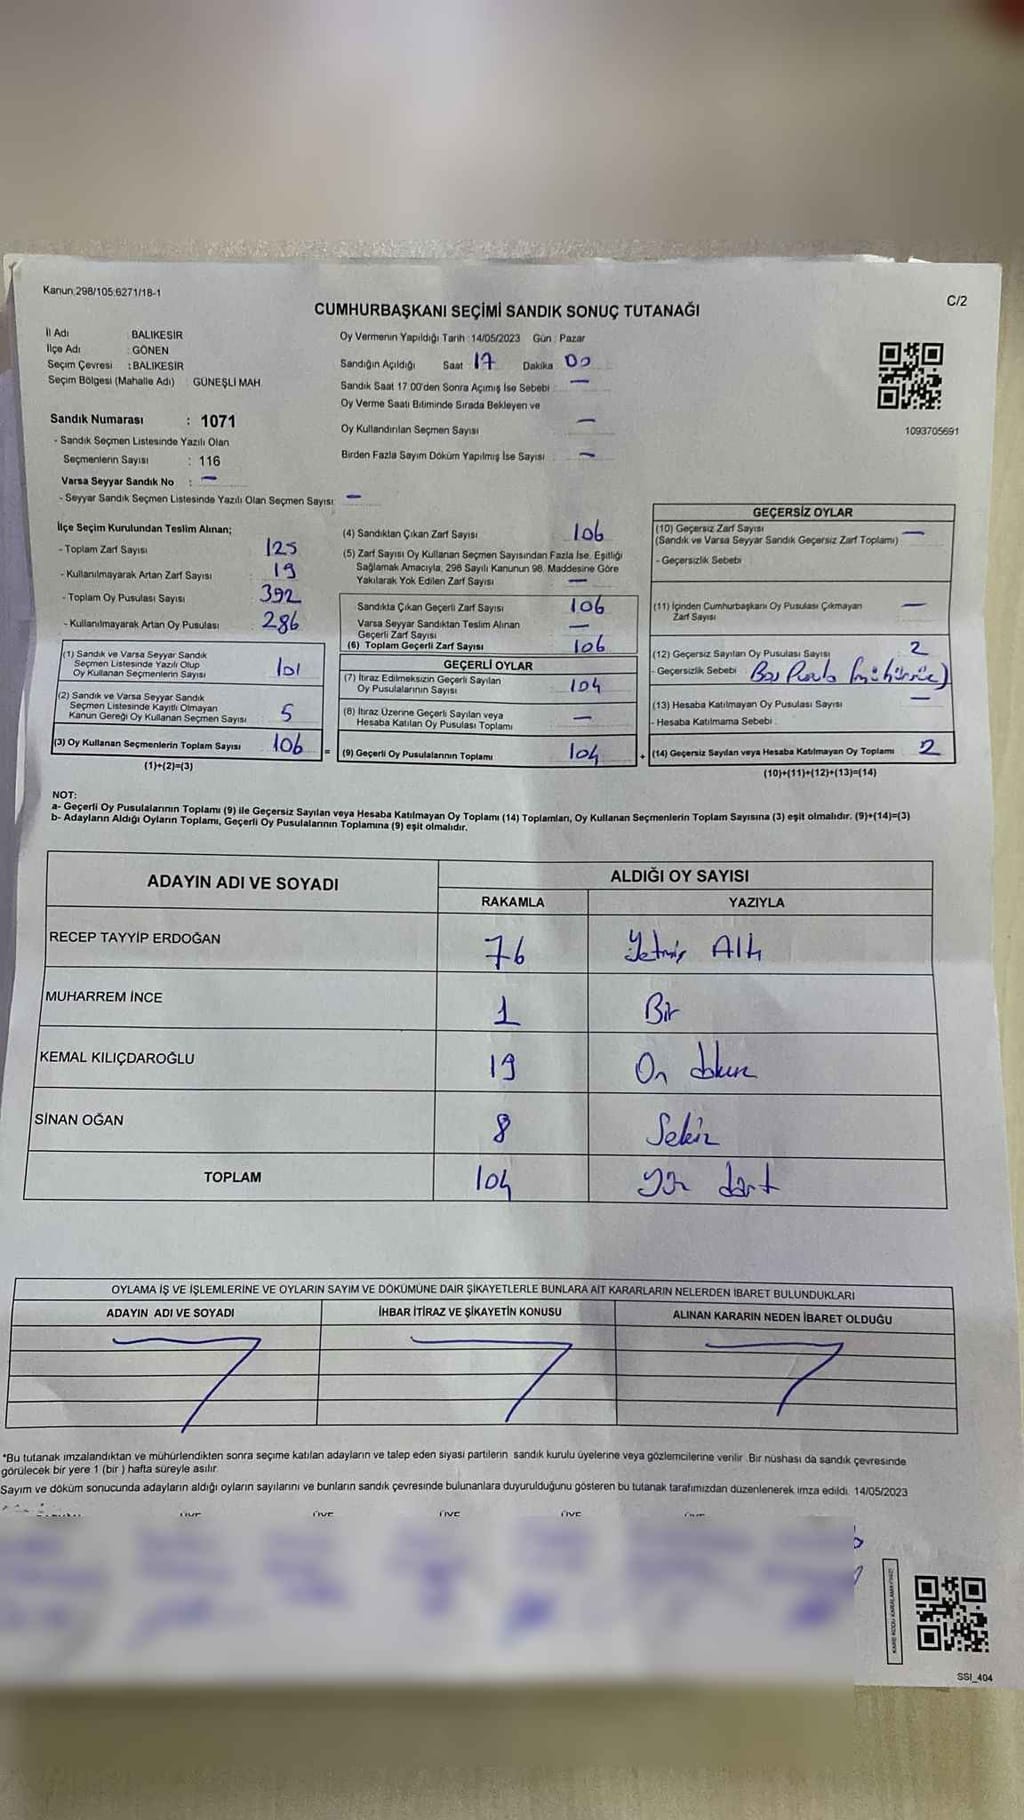 Kanun:298/105;6271/18-1
C/2
CUMHURBAŞKANI SEÇİMİ SANDIK SONUÇ TUTANAĞI
İl Adı BALIKESİR
İlçe Adı : GÖNEN
Seçim Çevresi : BALIKESİR
Seçim Bölgesi (Mahalle Adı) GÜNEŞLİ MAH.
Sandık Numarası : 1071
- Sandık Seçmen Listesinde Yazılı Olan
Seçmenlerin Sayısı : 116
Varsa Seyyar Sandık No : —
- Seyyar Sandık Seçmen Listesinde Yazılı Olan Seçmen Sayısı —
Oy Vermenin Yapıldığı Tarih 14/05/2023 Gün : Pazar
Sandığın Açıldığı Saat 17 Dakika 00
Sandık Saat 17.00'den Sonra Açımış İse Sebebi —
Oy Verme Saati Bitiminde Sırada Bekleyen ve
Oy Kullandırılan Seçmen Sayısı —
Birden Fazla Sayım Döküm Yapılmış İse Sayısı —
1093705691
İlçe Seçim Kurulundan Teslim Alınan;
- Toplam Zarf Sayısı 125
- Kullanılmayarak Artan Zarf Sayısı 19
- Toplam Oy Pusulası Sayısı 392
- Kullanılmayarak Artan Oy Pusulası 286
(1) Sandık ve Varsa Seyyar Sandık
Seçmen Listesinde Yazılı Olup
Oy Kullanan Seçmenlerin Sayısı 101
(2) Sandık ve Varsa Seyyar Sandık
Seçmen Listesinde Kayıtlı Olmayan
Kanun Gereği Oy Kullanan Seçmen Sayısı 5
(3) Oy Kullanan Seçmenlerin Toplam Sayısı 106 =
(1)+(2)=(3)
(4) Sandıktan Çıkan Zarf Sayısı 106
(5) Zarf Sayısı Oy Kullanan Seçmen Sayısından Fazla İse, Eşitliği
Sağlamak Amacıyla, 298 Sayılı Kanunun 98. Maddesine Göre
Yakılarak Yok Edilen Zarf Sayısı —
Sandıkta Çıkan Geçerli Zarf Sayısı 106
Varsa Seyyar Sandıktan Teslim Alınan
Geçerli Zarf Sayısı —
(6) Toplam Geçerli Zarf Sayısı 106
GEÇERLİ OYLAR
(7) İtiraz Edilmeksizin Geçerli Sayılan
Oy Pusulalarının Sayısı 104
(8) İtiraz Üzerine Geçerli Sayılan veya
Hesaba Katılan Oy Pusulası Toplamı —
(9) Geçerli Oy Pusulalarının Toplamı 104 +
GEÇERSİZ OYLAR
(10) Geçersiz Zarf Sayısı —
(Sandık ve Varsa Seyyar Sandık Geçersiz Zarf Toplamı)
- Geçersizlik Sebebi
(11) İçinden Cumhurbaşkanı Oy Pusulası Çıkmayan —
Zarf Sayısı
(12) Geçersiz Sayılan Oy Pusulası Sayısı 2
- Geçersizlik Sebebi Boş Pusula (mühürsüz)
(13) Hesaba Katılmayan Oy Pusulası Sayısı —
- Hesaba Katılmama Sebebi :
(14) Geçersiz Sayılan veya Hesaba Katılmayan Oy Toplamı 2
(10)+(11)+(12)+(13)=(14)
NOT:
a- Geçerli Oy Pusulalarının Toplamı (9) ile Geçersiz Sayılan veya Hesaba Katılmayan Oy Toplamı (14) Toplamları, Oy Kullanan Seçmenlerin Toplam Sayısına (3) eşit olmalıdır. (9)+(14)=(3)
b- Adayların Aldığı Oyların Toplamı, Geçerli Oy Pusulalarının Toplamına (9) eşit olmalıdır.
ADAYIN ADI VE SOYADI ALDIĞI OY SAYISI
RAKAMLA YAZIYLA
RECEP TAYYİP ERDOĞAN 76 Yetmiş Altı
MUHARREM İNCE 1 Bir
KEMAL KILIÇDAROĞLU 19 On dokuz
SİNAN OĞAN 8 Sekiz
TOPLAM 104 Yüz dört
OYLAMA İŞ VE İŞLEMLERİNE VE OYLARIN SAYIM VE DÖKÜMÜNE DAİR ŞİKAYETLERLE BUNLARA AİT KARARLARIN NELERDEN İBARET BULUNDUKLARI
ADAYIN ADI VE SOYADI İHBAR İTİRAZ VE ŞİKAYETİN KONUSU ALINAN KARARIN NEDEN İBARET OLDUĞU
*Bu tutanak imzalandıktan ve mühürlendikten sonra seçime katılan adayların ve talep eden siyasi partilerin sandık kurulu üyelerine veya gözlemcilerine verilir. Bir nüshası da sandık çevresinde
görülecek bir yere 1 (bir ) hafta süreyle asılır.
Sayım ve döküm sonucunda adayların aldığı oyların sayılarını ve bunların sandık çevresinde bulunanlara duyurulduğunu gösteren bu tutanak tarafımızdan düzenlenerek imza edildi. 14/05/2023
SSI_404